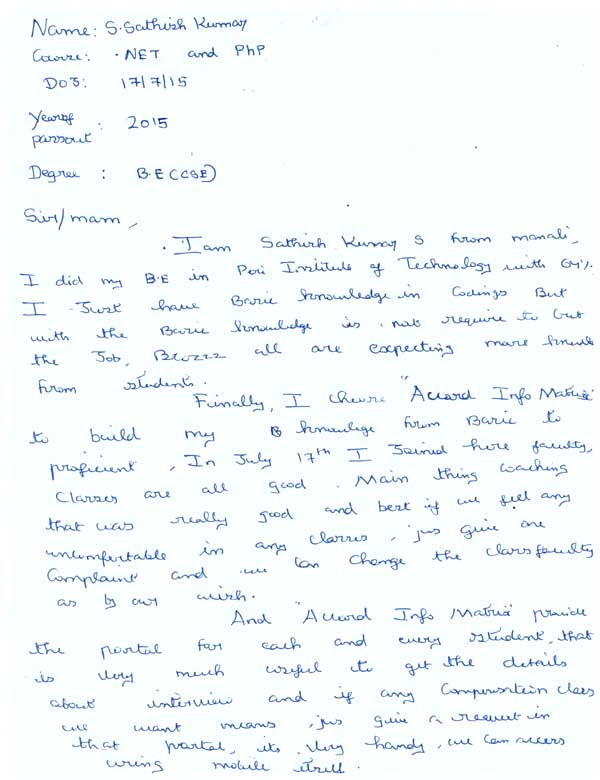 Name: S.Sathish Kumar
Course: .NET and PhP
DOJ: 17/7/15
Year of : 2015
passout
Degree : B.E (CSE)
Sir/mam,
I am Sathish Kumar S from manali,
I did my B.E in Peri Institute of Technology with
I Just have Basic knowledge in Codings But
with the Basic knowledge is not require to get
the Job, all are expecting more
from students.
Finally, I choose "Accord Info Matrix"
to build my from Basic to
proficient, In July 17th I Joined here faculty,
Classes are all good. Main thing coaching
that was really good and best if we feel any
in any classes, jus give one
Complaint and we can change the class faculty
as by our wish.
And "Accord Info Matrix" provide
the portal for each and every student, that
is very much useful to get the details
about interview and if any class
we want means, jus give a request in
that portal, its very handy, we can access
using mobile itself.